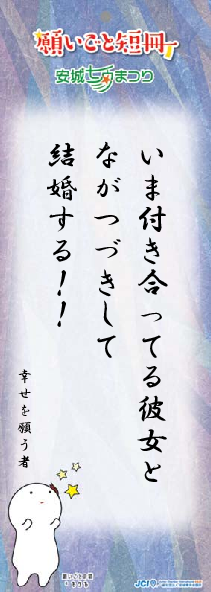 願いごと短冊
安城七夕まつり
いま付き合ってる彼女と
ながつづきして
結婚する！！
幸せを願う者
願いごと短冊
JCI